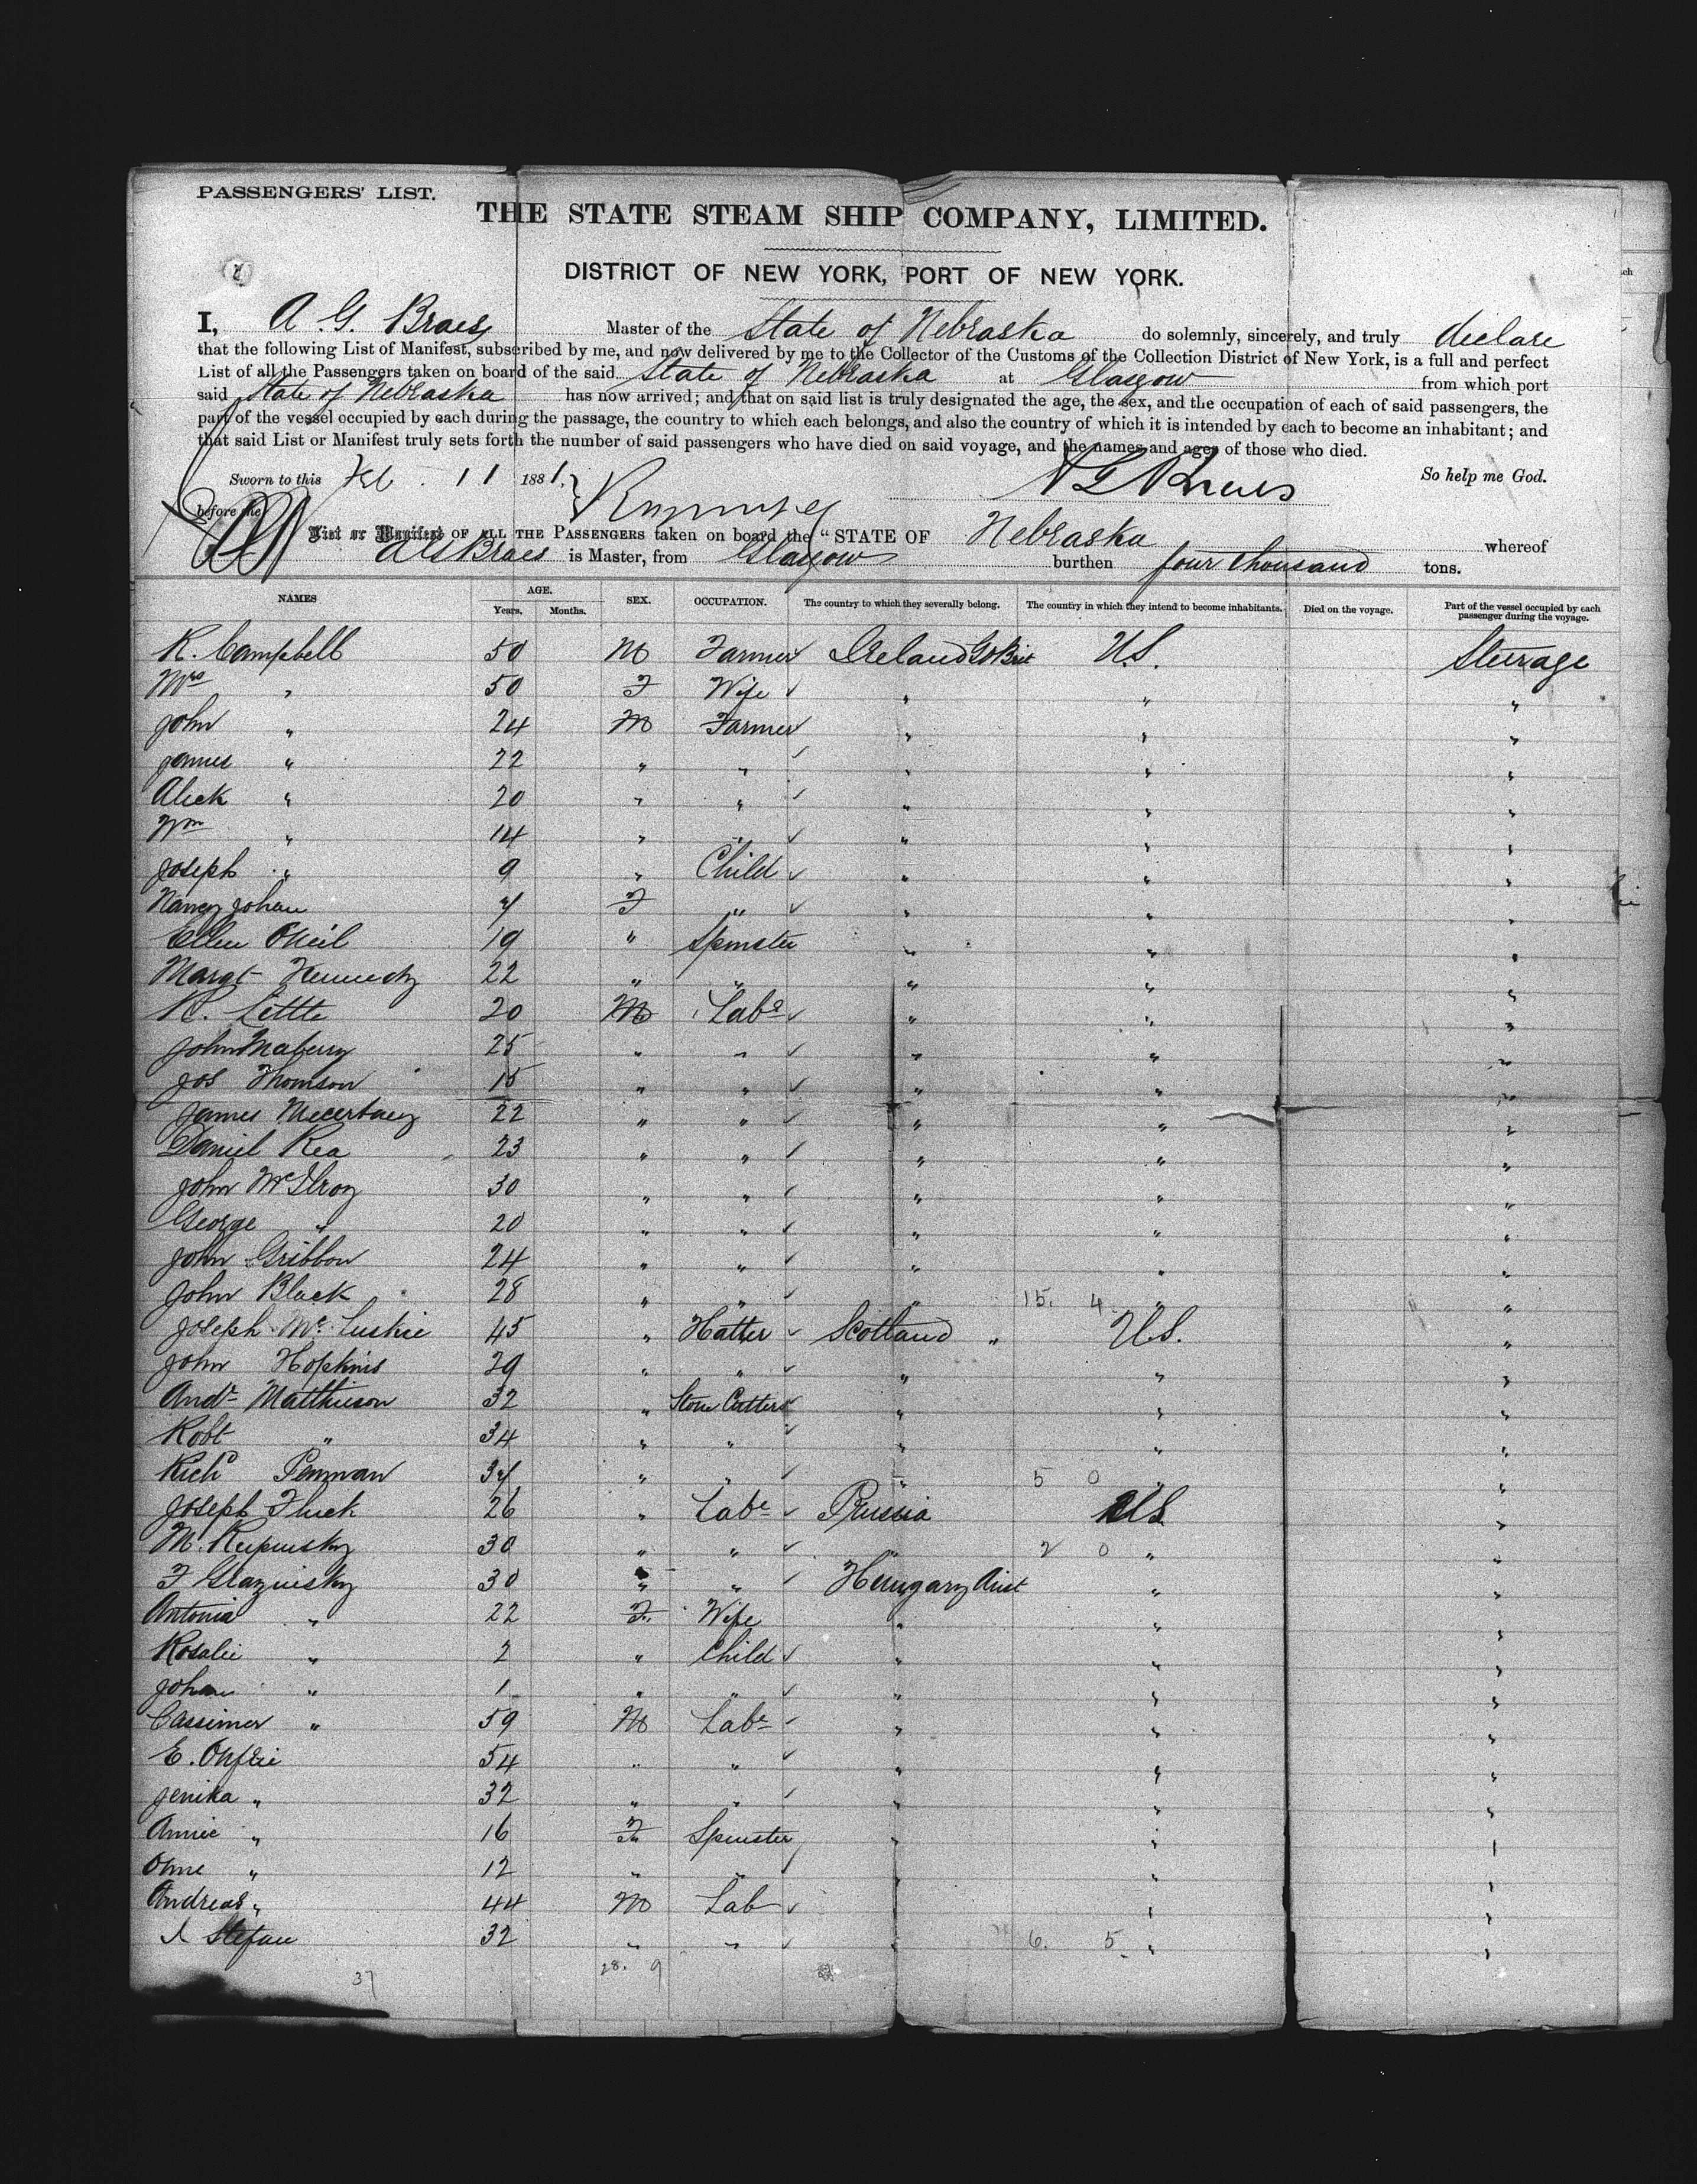 PASSENGERS' LIST.
THE STATE STEAM SHIP COMPANY, LIMITED.
DISTRICT OF NEW YORK, PORT OF NEW YORK.
I, A. G. Braes Master of the State of Nebraska do solemnly, sincerely, and truly declare
that the following List of Manifest, subscribed by me, and now delivered by me to the Collector of the Customs of the Collection District of New York, is a full and perfect
List of all the Passengers taken on board of the said State of Nebraska at Glasgow from which port
said State of Nebraska has now arrived; and that on said list is truly designated the age, the sex, and the occupation of each of said passengers, the
part of the vessel occupied by each during the passage, the country to which each belongs, and also the country of which it is intended by each to become an inhabitant; and
that said List or Manifest truly sets forth the number of said passengers who have died on said voyage, and the names and ages of those who died.
Sworn to this Feb. 11 1881. A G Braes So help me God.
before me
List or Manifest OF ALL THE PASSENGERS taken on board the "STATE OF Nebraska whereof
A G Braes is Master, from Glasgow burthen four thousand tons.
NAMES AGE. Years. Months. SEX. OCCUPATION. The country to which they severally belong. The country in which they intend to become inhabitants. Died on the voyage. Part of the vessel occupied by each passenger during the voyage.
R. Campbell 50 M Farmer Ireland Gt Brit U.S. Steerage
Mrs " 50 F Wife " " "
John " 24 M Farmer " " "
James " 22 " " " " "
Alick " 20 " " " " "
Wm " 14 " " " " "
Joseph " 9 " Child " " "
Nancy Johan 4 F " " " "
Ellen O'Neil 19 " Spinster " " "
Margt Kennedy 22 " " " " "
R. Lettle 20 M Labr " " "
John Maberry 25 " " " " "
Jos Thomson 15 " " " " "
James 22 " " " " "
Daniel Rea 23 " " " " "
John McIlroy 30 " " " " "
George " 20 " " " " "
John Gribbon 24 " " " " "
John Black 28 " " " 15. 4. " "
Joseph Mc Luskie 45 " Hatter Scotland " U.S. "
John Hopkins 29 " " " " "
Andr Matthieson 32 " Stone Cutters " " "
Robt " 34 " " " " "
Richd Penman 34 " " " 5 0 " "
Joseph Fluck 26 " Labr Prussia U.S. "
M. 30 " " " 2 0 " "
F Glazinsky 30 " " Hungary Aust " "
Antonia " 22 F. Wife " " "
Rosalie " 2 " Child " " "
Johan " 1 " " " " "
Cassimer " 59 M Labr " " "
E. Onfrie 54 " " " " "
Jenika " 32 " " " " "
Annie " 16 F Spinster " " "
Ohne " 12 " " " "
Andreas " 44 M Lab " "
Stefan 32 " " 6. 5. " "
37 28. 9